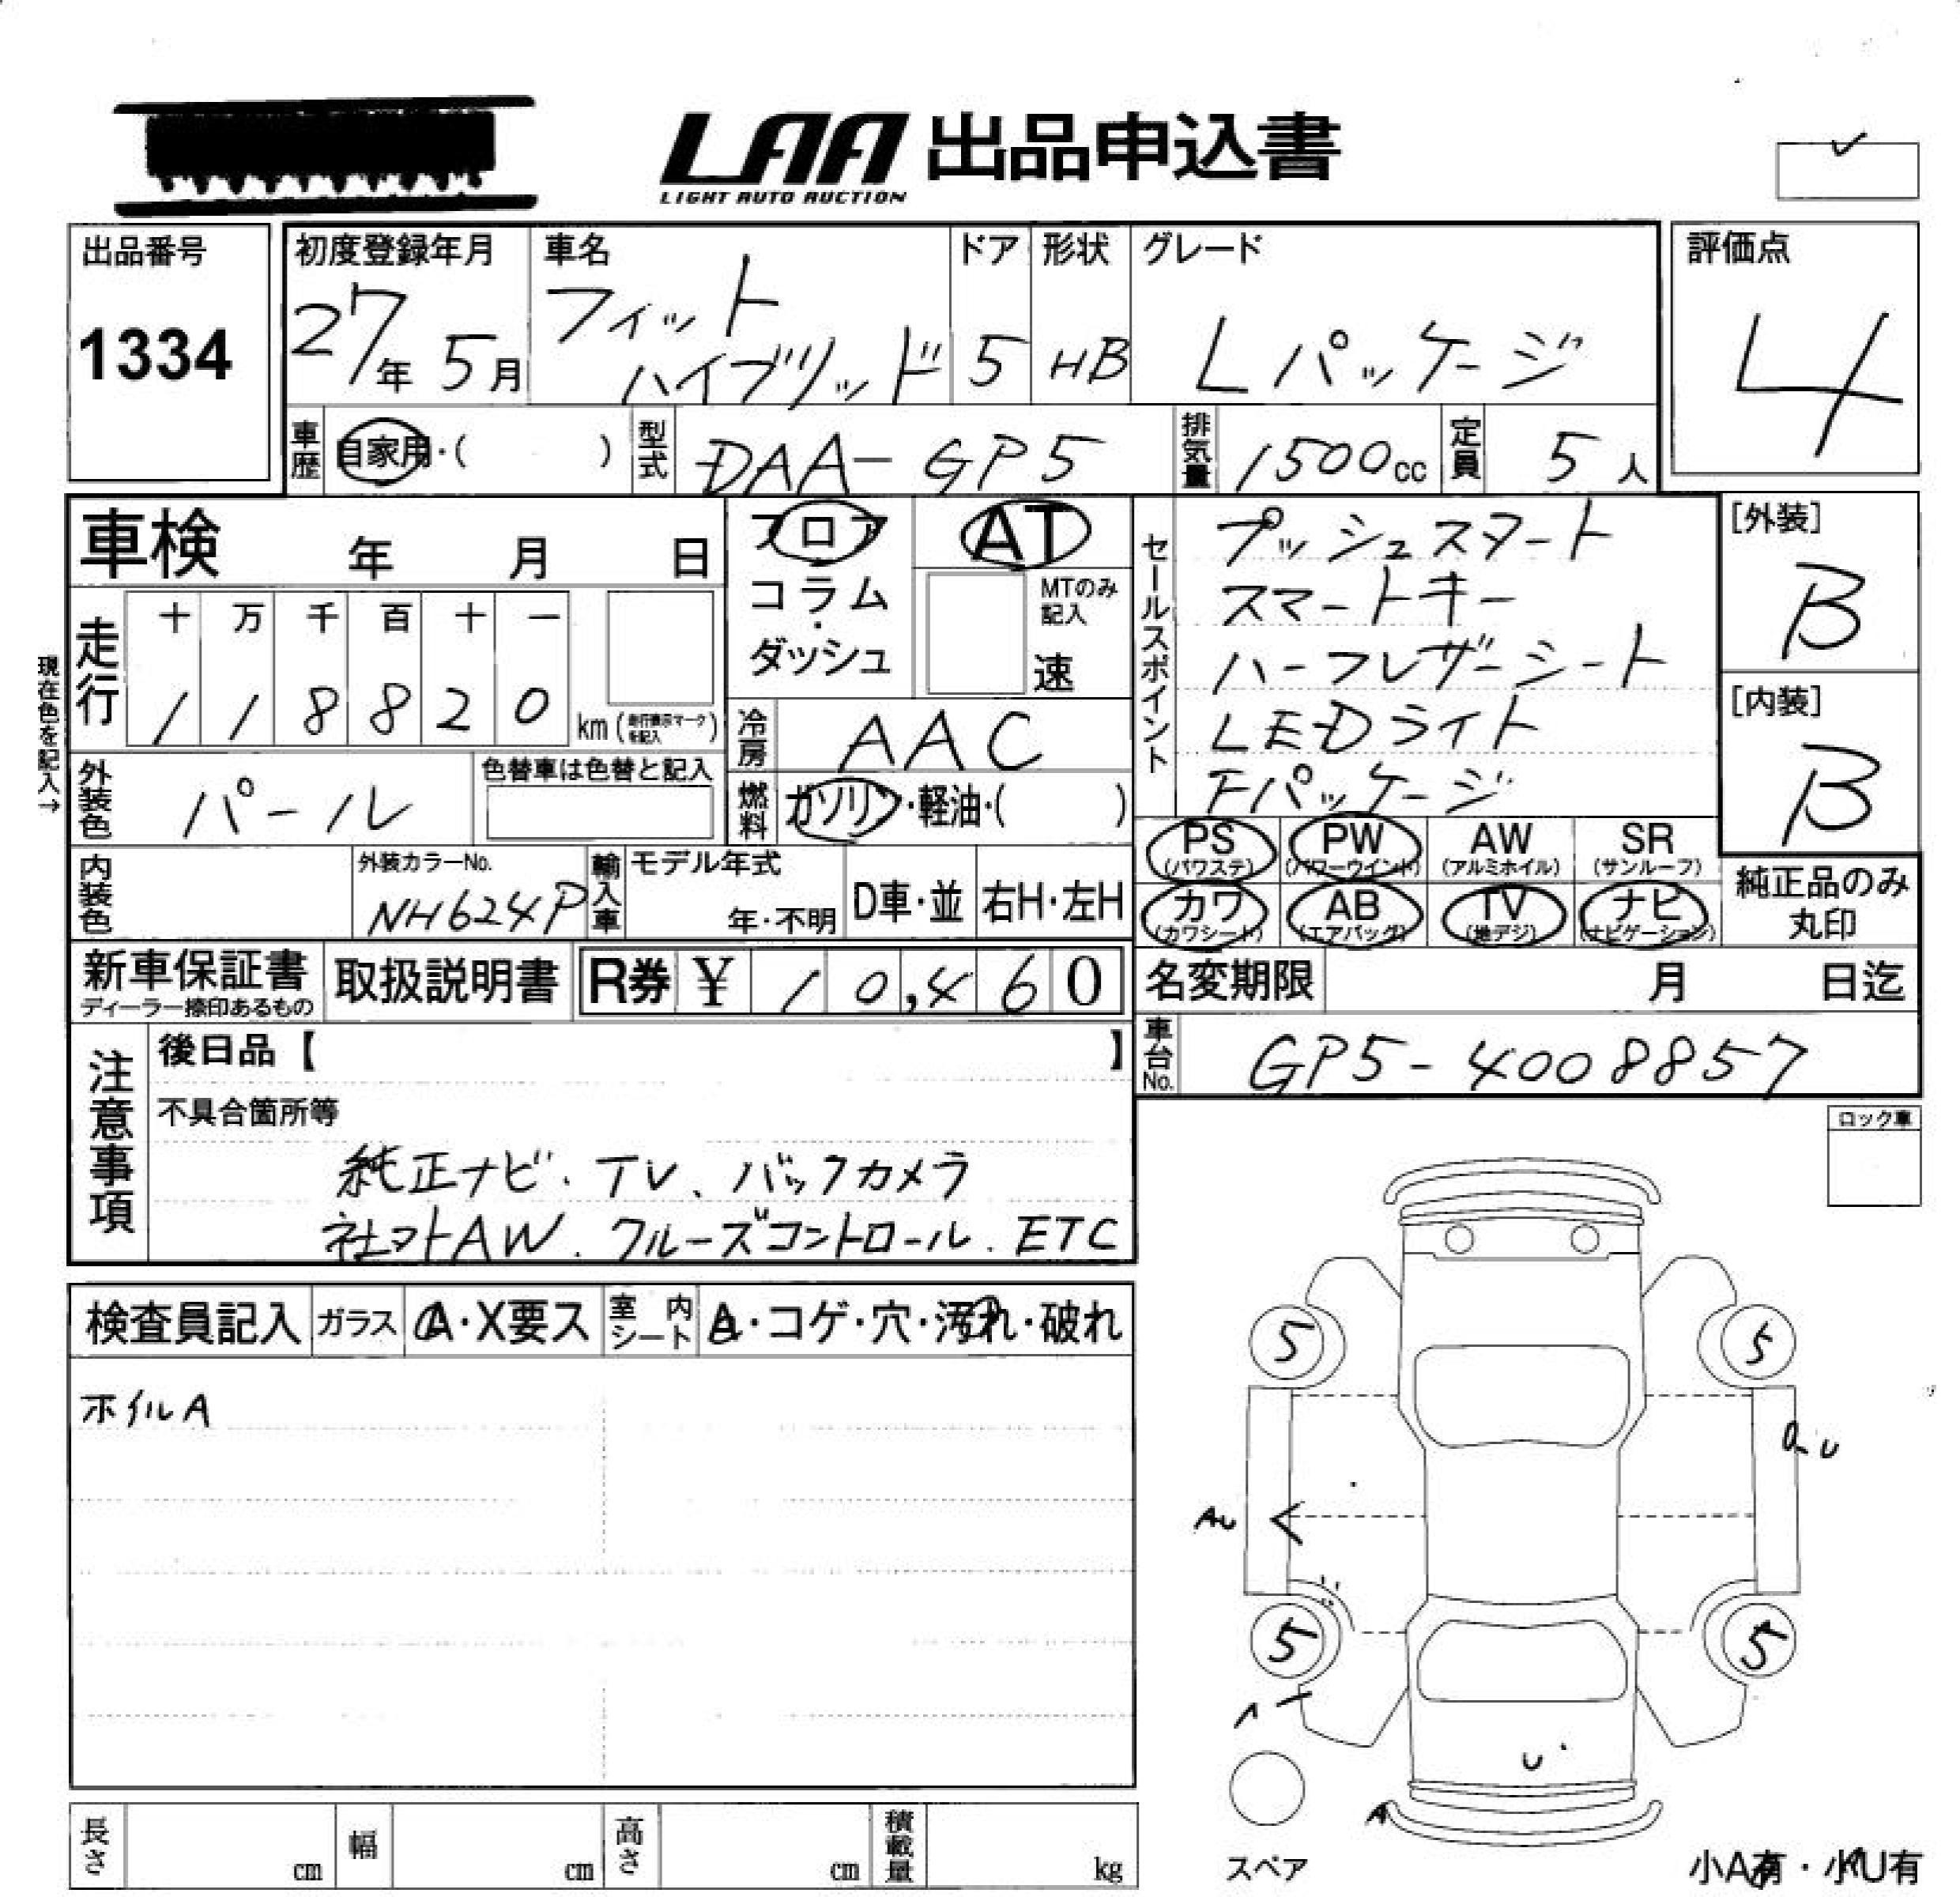 LAA 出品申込書
LIGHT AUTO AUCTION
出品番号
1334
初度登録年月
27年 5月
車名
フィット
ハイブリッド
ドア
5
形状
HB
グレード
Lパッケージ
評価点
4
車歴 自家用・( )
型式 DAA-GP5
排気量 1500cc
定員 5人
車検 年 月 日
フロア
コラム
・
ダッシュ
AT
MTのみ
記入
速
セールスポイント
プッシュスタート
スマートキー
ハーフレザーシート
LEDライト
Fパッケージ
[外装]
B
[内装]
B
現在色を記入→
走行
十 万 千 百 十 一
1 1 8 8 2 0 km (走行表示マークを記入)
冷房 AAC
外装色 パール
色替車は色替と記入
燃料 ガソリン・軽油・( )
PS
(パワステ)
PW
(パワーウインド)
AW
(アルミホイル)
SR
(サンルーフ)
カワ
(カワシート)
AB
(エアバッグ)
TV
(地デジ)
ナビ
(ナビゲーション)
純正品のみ
丸印
内装色
外装カラーNo.
NH624P
輸入車
モデル年式
年・不明
D車・並
右H・左H
新車保証書
ディーラー捺印あるもの
取扱説明書
R券 ¥ 10,460
名変期限 月 日迄
車台No. GP5-4008857
注意事項
後日品【 】
不具合箇所等
純正ナビ、TV、バックカメラ
社外AW、クルーズコントロール、ETC
ロック車
検査員記入
ガラス
A・X要ス
室内シート
A・コゲ・穴・汚れ・破れ
ホイルA
5
5
AU
U
5
5
A
U
A
スペア
小A有・小U有
長さ cm
幅 cm
高さ cm
積載量 kg